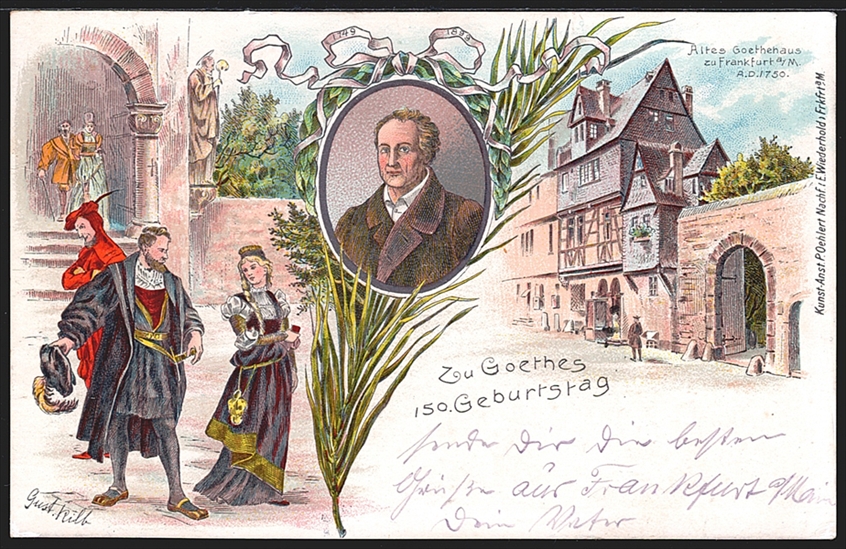 1749 1899
Altes Goethehaus
zu Frankfurt a/M.
A.D. 1750.
Kunst-Anst. P. Oehlert Nachf.: E. Wiederhold i. Frkfrt a/M.
Zu Goethes
150. Geburtstag
sende Dir die besten
Grüße aus Frankfurt a/Main
Dein Vater
Gust. Kilb